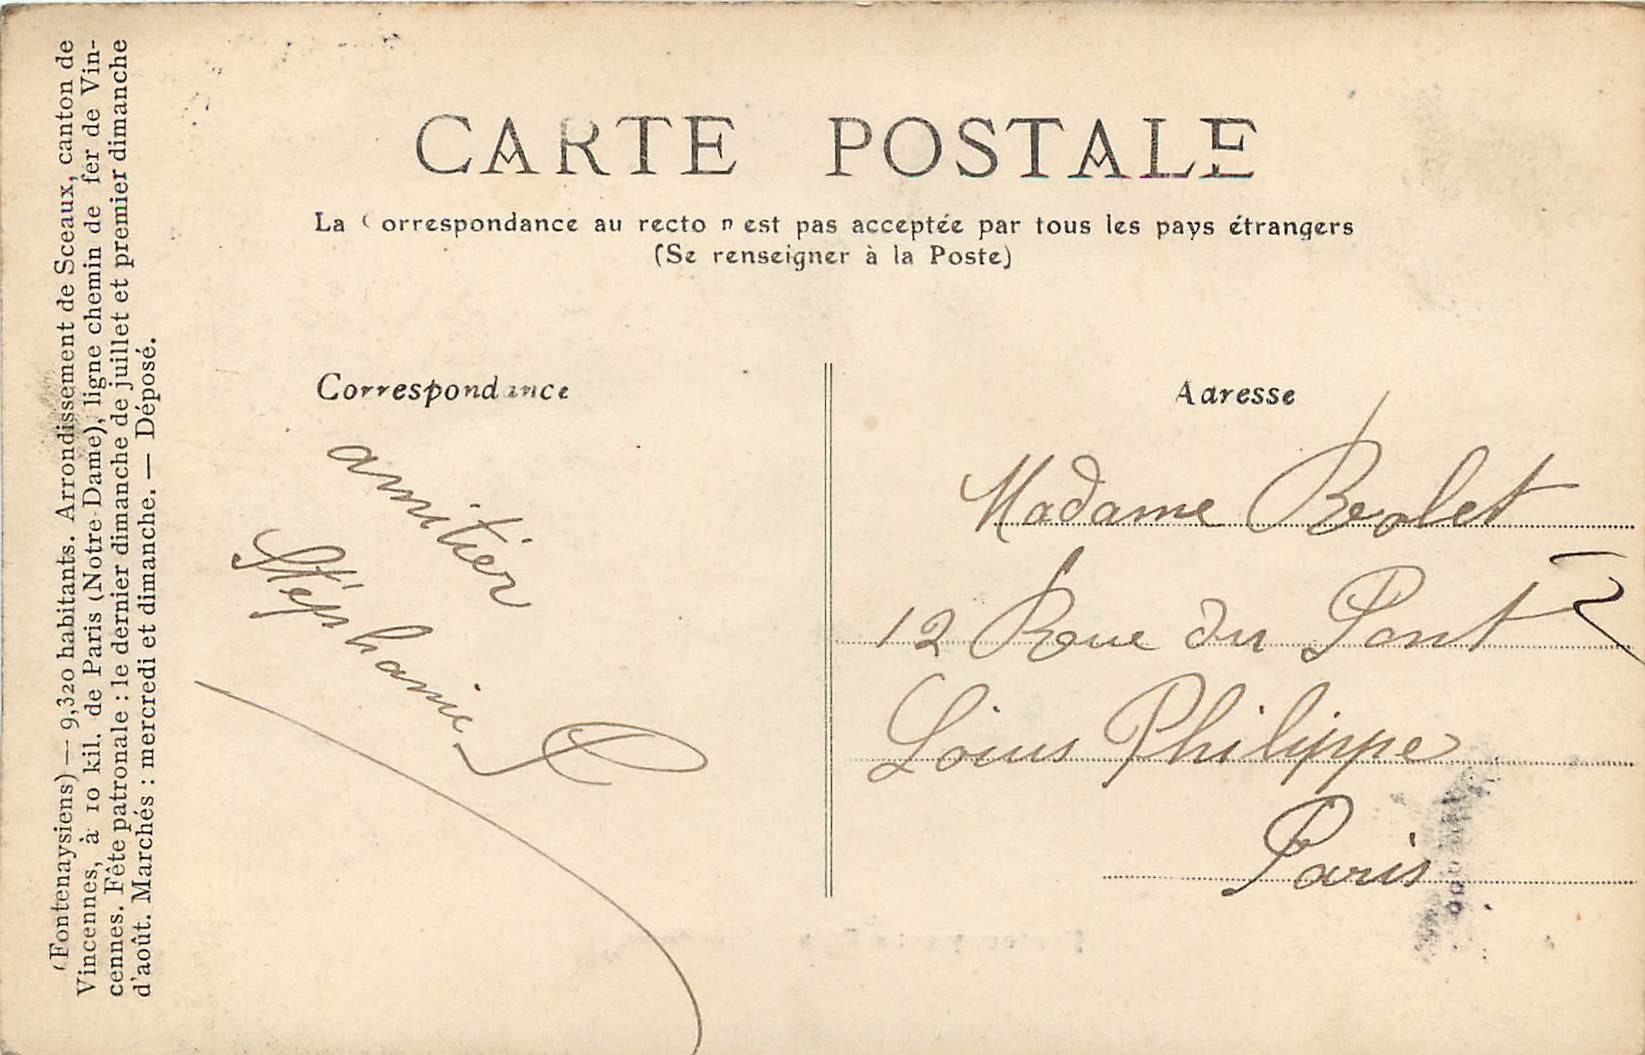 (Fontenaysiens) — 9,320 habitants. Arrondissement de Sceaux, canton de
Vincennes, à 10 kil. de Paris (Notre-Dame), ligne chemin de fer de Vin-
cennes. Fête patronale : le dernier dimanche de juillet et premier dimanche
d'août. Marchés : mercredi et dimanche. — Déposé.
CARTE POSTALE
La Correspondance au recto n'est pas acceptée par tous les pays étrangers
(Se renseigner à la Poste)
Correspondance
amitier
Stéphanie
Adresse
Madame Rolet
12 Rue du Pont
Louis Philippe
Paris